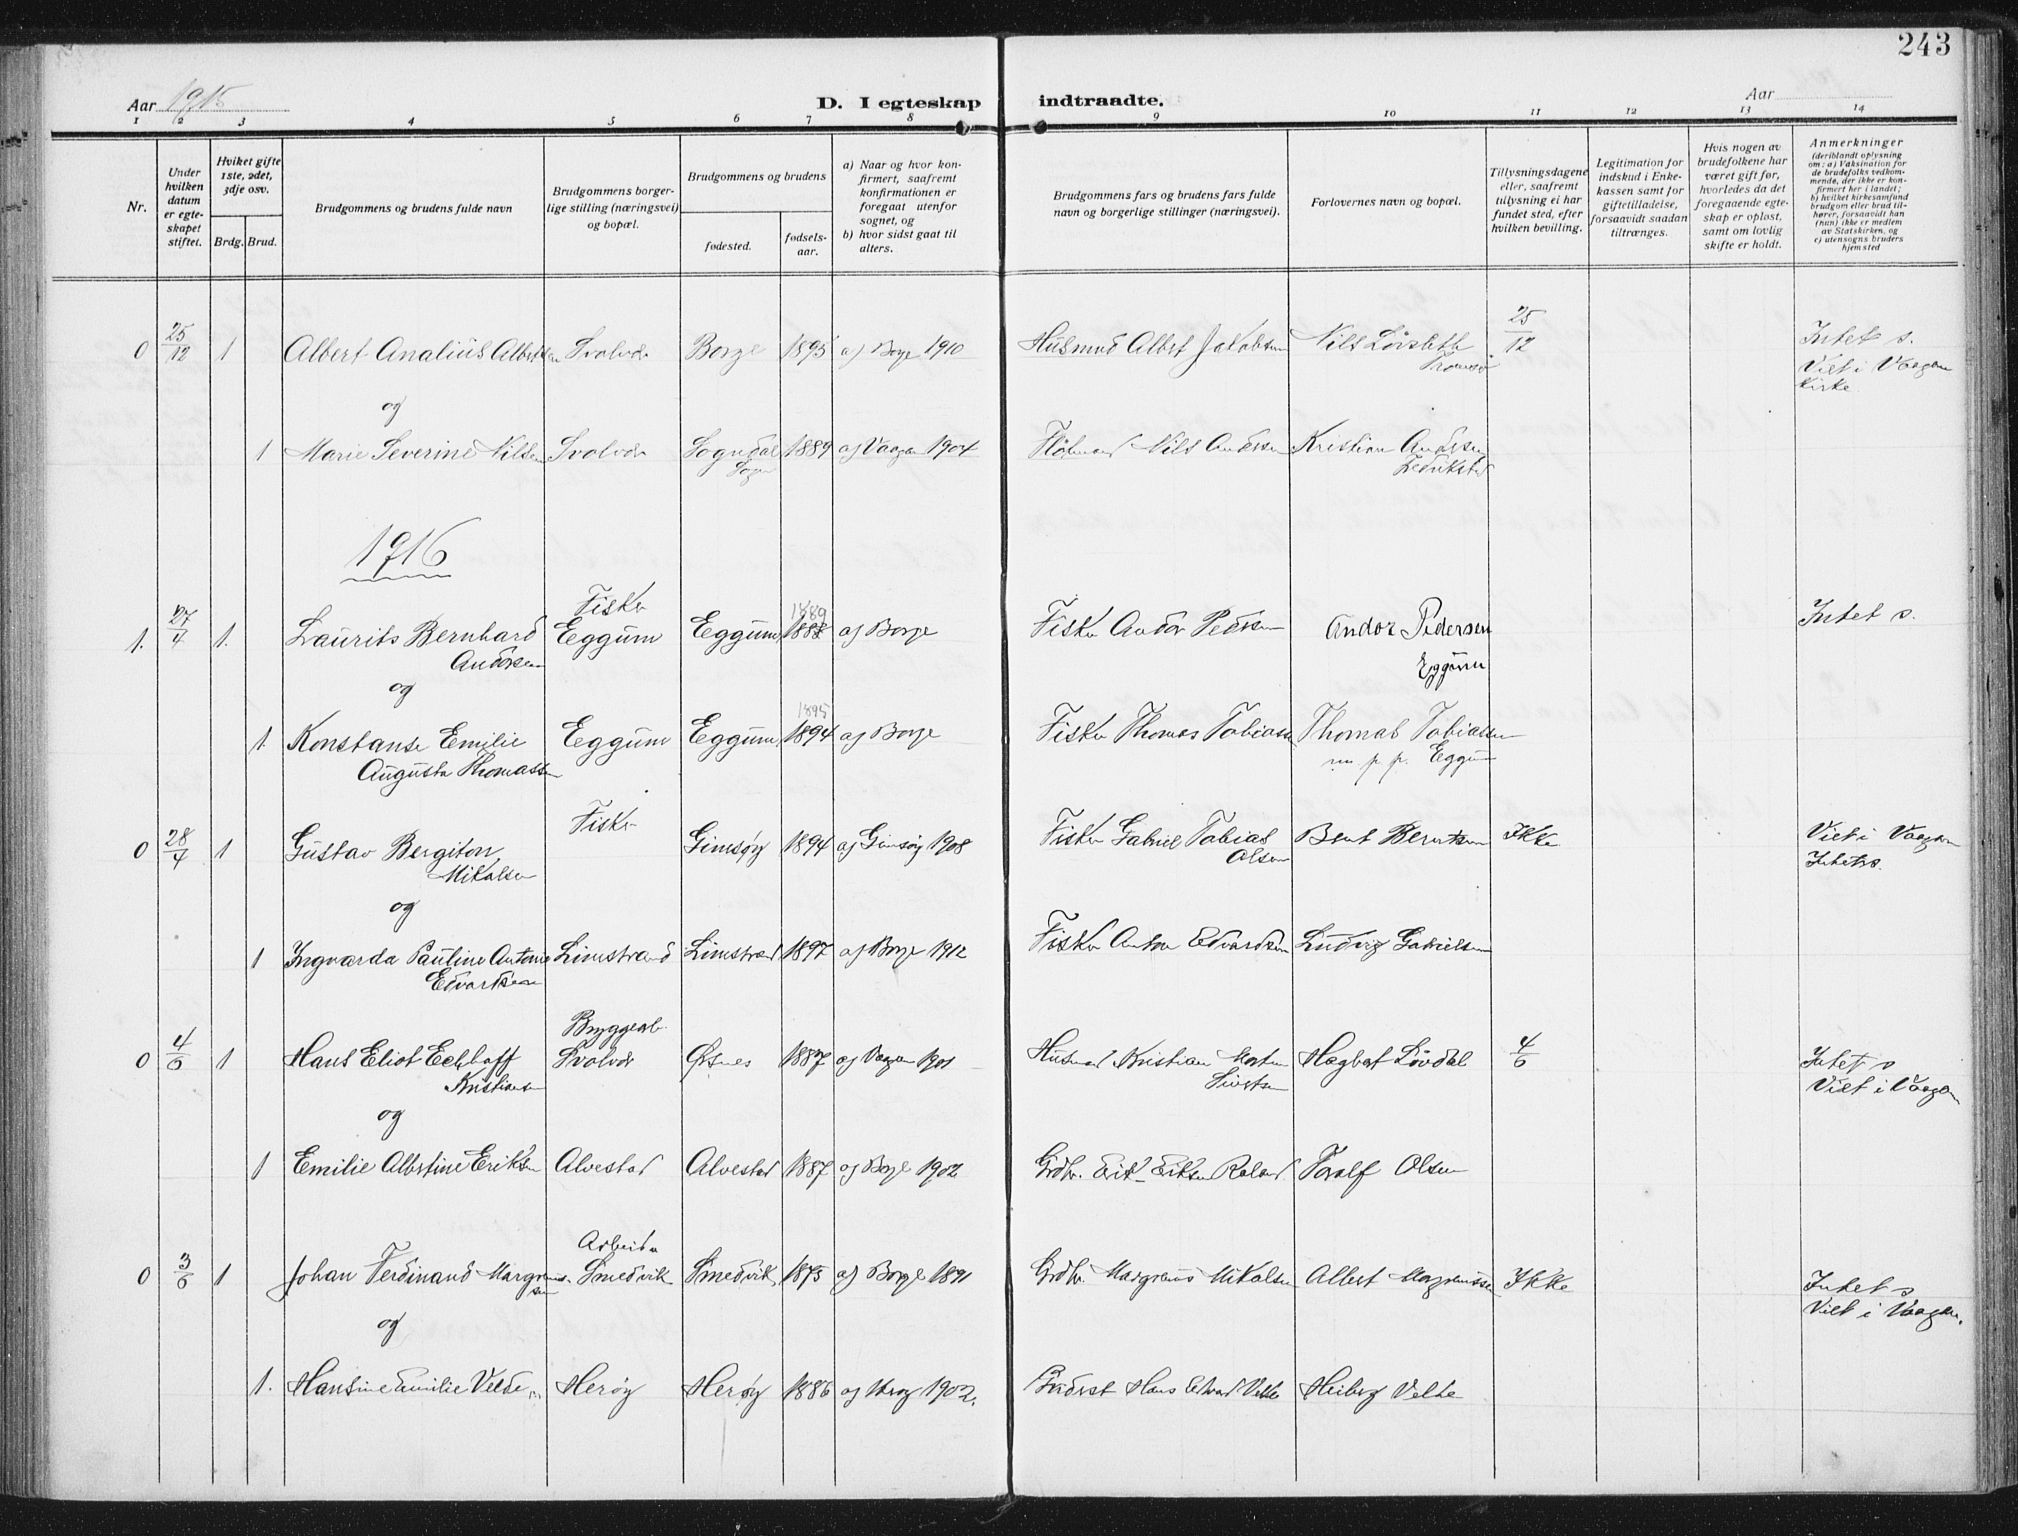 243
Aar 1915
D. I egteskap indtraadte.
Aar
1 2 3 4 5 6 7 8 9 10 11 12 13 14
Nr.
Under hvilken datum er egteskapet stiftet.
Hviket gifte 1ste, 2det, 3dje osv.
Brdg. Brud.
Brudgommens og brudens fulde navn
Brudgommens borgerlige stilling (næringsvei) og bopæl.
Brudgommens og brudens
fødested. fødselsaar.
a) Naar og hvor konfirmert, saafremt konfirmationen er foregaat utenfor sognet, og
b) hvor sidst gaat til alters.
Brudgommens fars og brudens fars fulde navn og borgerlige stillinger (næringsvei).
Forlovernes navn og bopæl.
Tillysningsdagene eller, saafremt tillysning ei har fundet sted, efter hvilken bevilling.
Legitimation for indskud i Enkekassen samt for giftetilladelse, forsaavidt saadan tiltrænges.
Hvis nogen av brudefolkene har været gift før, hvorledes da det foregaaende egteskap er opløst, samt om lovlig skifte er holdt.
Anmerkninger
(deriblandt oplysning om: a) Vaksination for de brudefolks vedkommende, der ikke er konfirmert her i landet; b) hvilket kirkesamfund brudgom eller brud tilhører, forsaavidt han (hun) ikke er medlem av Statskirken, og c) utensogns bruders hjemsted
0 25/12 1 Albert Analius Albertsen Svolvær Borge 1895 a) Borge 1910 Husmnd Albert Jakobsen Nils Tromsø 25/12 Intet s. Viet i Vaagan Kirke
og
1 Marie Severine Nilsen Svolvær Sogndal Sogn 1889 a) Vaagan 1904 Nils Andersen Kristian Andersen Fredrikstad
1916
1. 27/4 1. Laurits Bernhard Andorsen Fisker Eggum Eggum 1889 a) Borge Fisker Andor Pedersen Andor Pedersen Eggum Intet s.
og
1 Konstanse Emilie Augusta Thomassen Eggum Eggum 1895 1894 a) Borge Fisker Thomas Tobiassen Thomas Tobiassen m. p. p. Eggum
0 28/4 1 Gustav Bergiton Mikalsen Fisker Gimsøy 1894 a) Gimsøy 1908 Fisker Gabriel Tobias Olsen Bent Berntsen Ikke Viet i Vaagan Intet s.
og
1 Ingvarda Pauline Antonie Edvardsen Limstrand Limstrand 1897 a) Borge 1912 Fisker Anton Edvardsen Ludvig Gabrielsen
0 4/6 1 Hans Eliot Echhoff Kristiansen Bryggearb. Svolvær Ørsnes 1887 a) Vaagan 1901 Husmand Kristian Morten Sivertsen Hagbart Lövdal 4/6 Intet s Viet i Vaagan
og
1 Emilie Albertine Eriksen Alvestad Alvestad 1887 a) Borge 1902 Grdbr. Erik Eriksen Roland Toralf Olsen
0 3/6 1 Johan Ferdinand Margreus-sen Arbeider Smedvik Smedvik 1875 a) Borge 1891 Grdbr Margreus Mikalsen Albert Margreussen Ikke Intet s Viet i Vaagan.
og
1. Hansine Emilie Velde Herøy Herøy 1886 a) Herøy 1902. Hans Edvard Velde Heiberg Velde